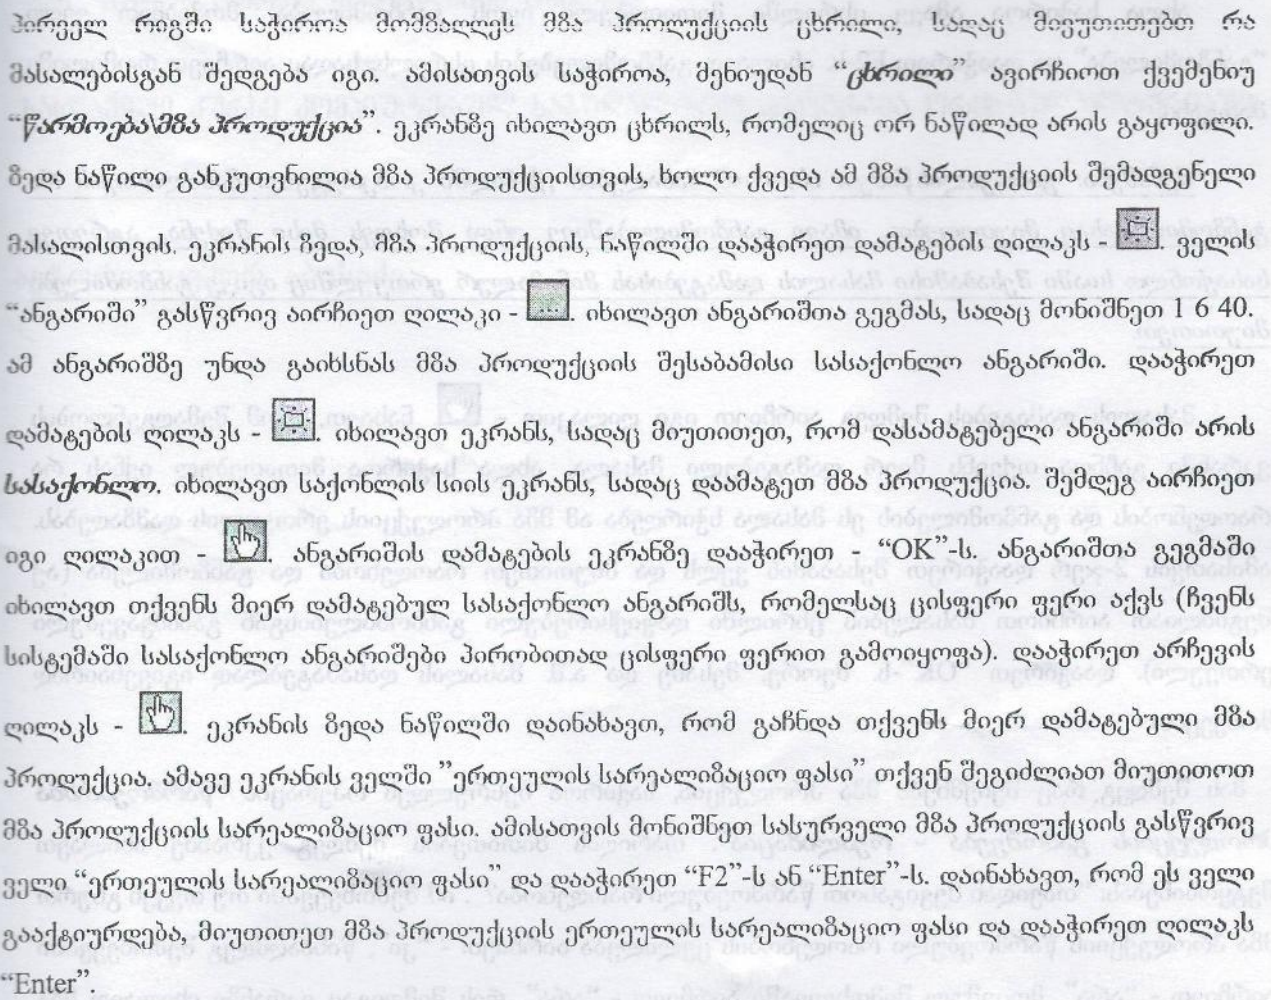 პირველ რიგში საჭიროა მომზადდეს მზა პროდუქციის ცხრილი, სადაც მივუთითებთ რა
მასალებისგან შედგება იგი. ამისათვის საჭიროა, მენიუდან “ცხრილი” ავირჩიოთ ქვემენიუ
“წარმოება\მზა პროდუქცია”. ეკრანზე იხილავთ ცხრილს, რომელიც ორ ნაწილად არის გაყოფილი.
ზედა ნაწილი განკუთვნილია მზა პროდუქციისთვის, ხოლო ქვედა ამ მზა პროდუქციის შემადგენელი
მასალისთვის. ეკრანის ზედა, მზა პროდუქციის, ნაწილში დააჭირეთ დამატების ღილაკს - . ველის
“ანგარიში” გასწვრივ აირჩიეთ ღილაკი - ... . იხილავთ ანგარიშთა გეგმას, სადაც მონიშნეთ 1 6 40.
ამ ანგარიშზე უნდა გაიხსნას მზა პროდუქციის შესაბამისი სასაქონლო ანგარიში. დააჭირეთ
დამატების ღილაკს - . იხილავთ ეკრანს, სადაც მიუთითეთ, რომ დასამატებელი ანგარიში არის
სასაქონლო. იხილავთ საქონლის სიის ეკრანს, სადაც დაამატეთ მზა პროდუქცია. შემდეგ აირჩიეთ
იგი ღილაკით - . ანგარიშის დამატების ეკრანზე დააჭირეთ - “OK”-ს. ანგარიშთა გეგმაში
იხილავთ თქვენს მიერ დამატებულ სასაქონლო ანგარიშს, რომელსაც ცისფერი ფერი აქვს (ჩვენს
სისტემაში სასაქონლო ანგარიშები პირობითად ცისფერი ფერით გამოიყოფა). დააჭირეთ არჩევის
ღილაკს - . ეკრანის ზედა ნაწილში დაინახავთ, რომ გაჩნდა თქვენს მიერ დამატებული მზა
პროდუქცია. ამავე ეკრანის ველში ”ერთეულის სარეალიზაციო ფასი” თქვენ შეგიძლიათ მიუთითოთ
მზა პროდუქციის სარეალიზაციო ფასი. ამისათვის მონიშნეთ სასურველი მზა პროდუქციის გასწვრივ
ველი “ერთეულის სარეალიზაციო ფასი” და დააჭირეთ “F2”-ს ან “Enter”-ს. დაინახავთ, რომ ეს ველი
გააქტიურდება, მიუთითეთ მზა პროდუქციის ერთეულის სარეალიზაციო ფასი და დააჭირეთ ღილაკს
“Enter”.